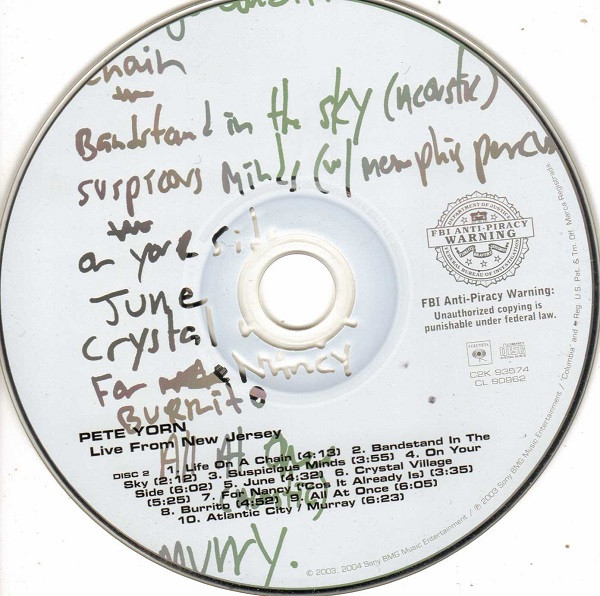 chain
Bandstand in the sky (Acoustic)
suspicious Minds (w/ Memphis percus
on your side
June
Crystal
For Nancy
Burrito
All At Once
(Acoustic)
Murry.
DEPARTMENT OF JUSTICE
FBI ANTI-PIRACY
WARNING
FEDERAL BUREAU OF INVESTIGATION
FBI Anti-Piracy Warning:
Unauthorized copying is
punishable under federal law.
COLUMBIA
COMPACT disc DIGITAL AUDIO
C2K 93574
CL 90962
PETE YORN
Live From New Jersey
DISC 2 1. Life On A Chain (4:13) 2. Bandstand In The
Sky (2:12) 3. Suspicious Minds (3:55) 4. On Your
Side (6:02) 5. June (4:32) 6. Crystal Village
(5:25) 7. For Nancy ("Cos It Already Is) (3:35)
8. Burrito (4:52) 9. All At Once (6:05)
10. Atlantic City / Murray (6:23)
© 2003, 2004 Sony BMG Music Entertainment / ℗ 2003 Sony BMG Music Entertainment / "Columbia" and Reg. U.S. Pat. & Tm. Off. Marca Registrada.